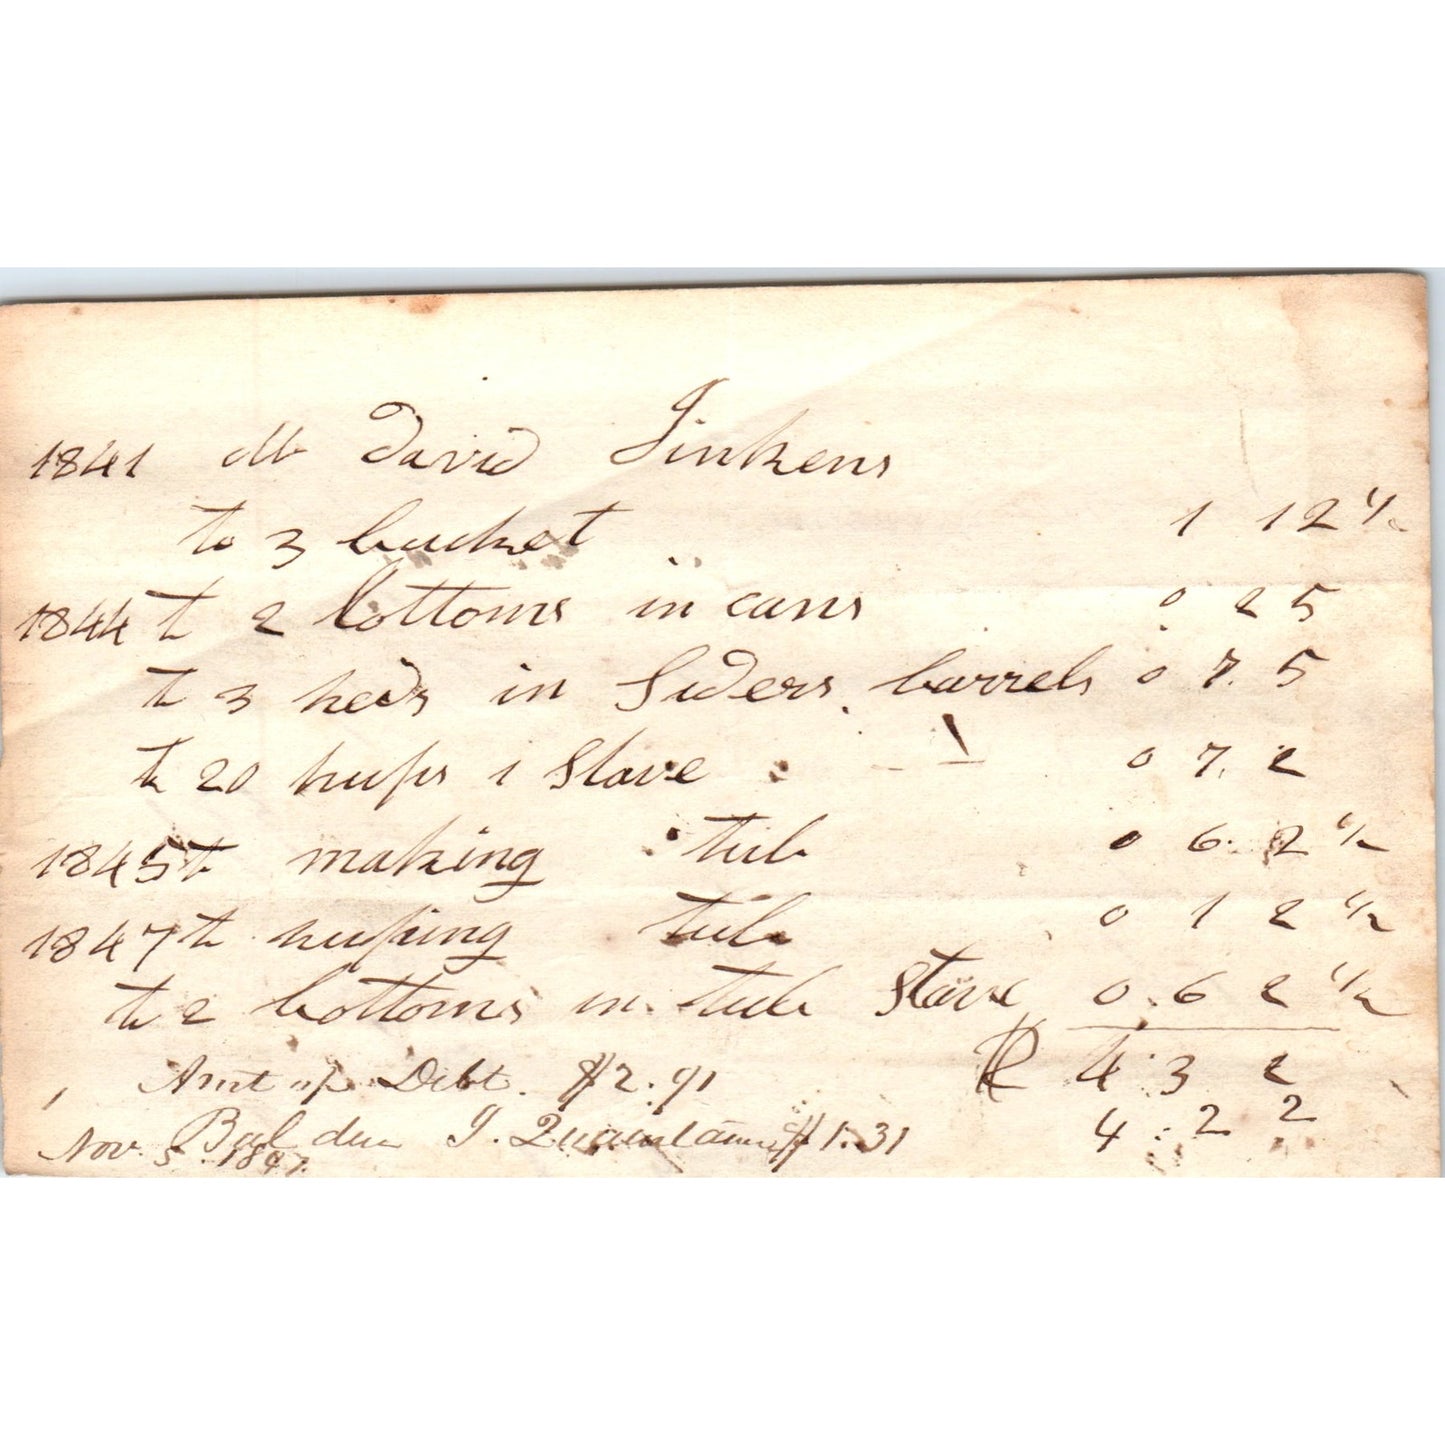 1841 Mr David Jinkens
to 3 bucket 1 12 1/2
1844 to 2 bottoms in cans 0 25
to 3 heds in Siders barrels 0 7.5
to 20 hups 1 Stave 0 7.2
1845 to making tub 0 6.2 1/2
1847 to huping tub 0 1 2 1/2
to 2 bottoms in tub Stave 0.6 2 1/2
4:3 2
Amt of Debt. $2.91
4:22
Bal due J. $1.31
Nov. 5. 1847.